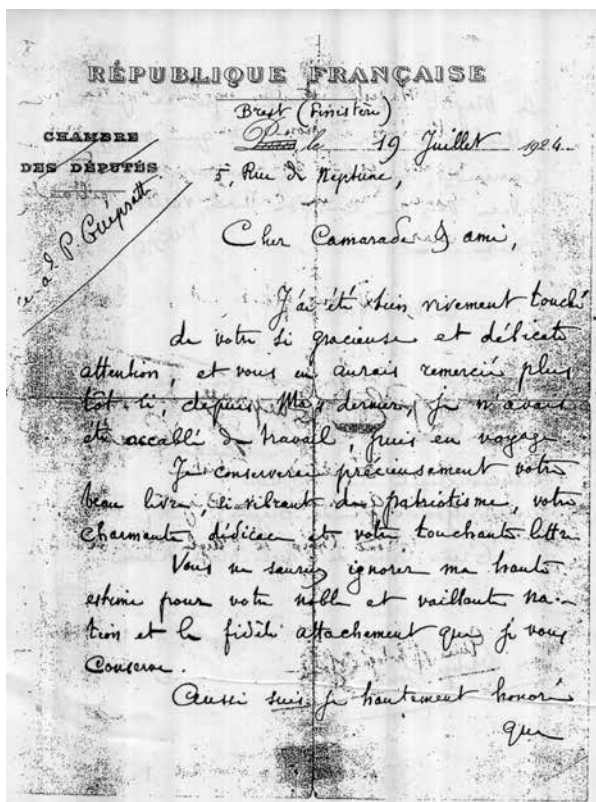 RÉPUBLIQUE FRANÇAISE
Brest (Finistère)
CHAMBRE
DES DÉPUTÉS
Paris, le 19 Juillet 1924
5, Rue de Neptune,
P. Guépratte
Cher Camarade & ami,
J'ai été bien vivement touché
de votre si gracieuse et délicate
attention, et vous en aurais remercié plus
tôt si, depuis Mars dernier, je n'avais
été accablé de travail, puis en voyage.
Je conserverai précieusement votre
beau livre, si vibrant de patriotisme, votre
charmante dédicace et votre touchante lettre
Vous ne sauriez ignorer ma haute
estime pour votre noble et vaillante na-
tion et le fidèle attachement que je vous
conserve.
Aussi suis je hautement honoré
que